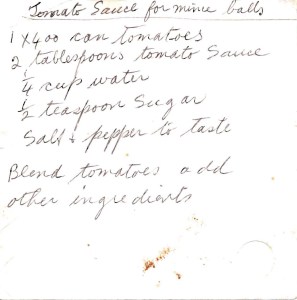 Tomato Sauce for mince balls
1 x 400 can tomatoes
2 tablespoons tomato Sauce
1/4 cup water
1/2 teaspoon Sugar
Salt & pepper to taste
Blend tomatoes add
other ingredients